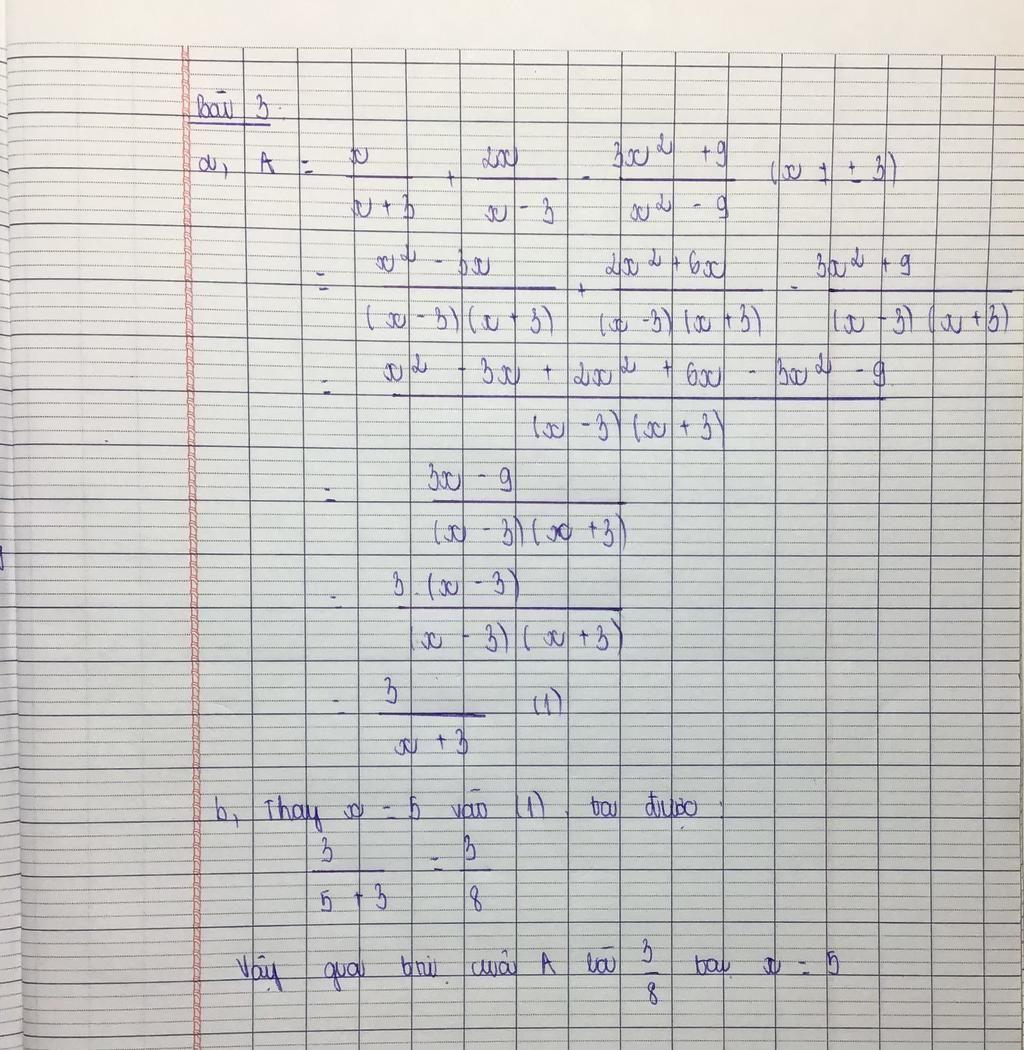 Bài 3:
a, A = x/(x + 3) + 2x/(x - 3) - (3x² + 9)/(x² - 9) (x ≠ ± 3)
= (x² - 3x)/((x - 3)(x + 3)) + (2x² + 6x)/((x - 3)(x + 3)) - (3x² + 9)/((x - 3)(x + 3))
= (x² - 3x + 2x² + 6x - 3x² - 9)/((x - 3)(x + 3))
= (3x - 9)/((x - 3)(x + 3))
= (3.(x - 3))/((x - 3)(x + 3))
= 3/(x + 3) (1)
b, Thay x = 5 vào (1), ta được:
3/(5 + 3) = 3/8
Vậy giá trị của A là 3/8 tại x = 5